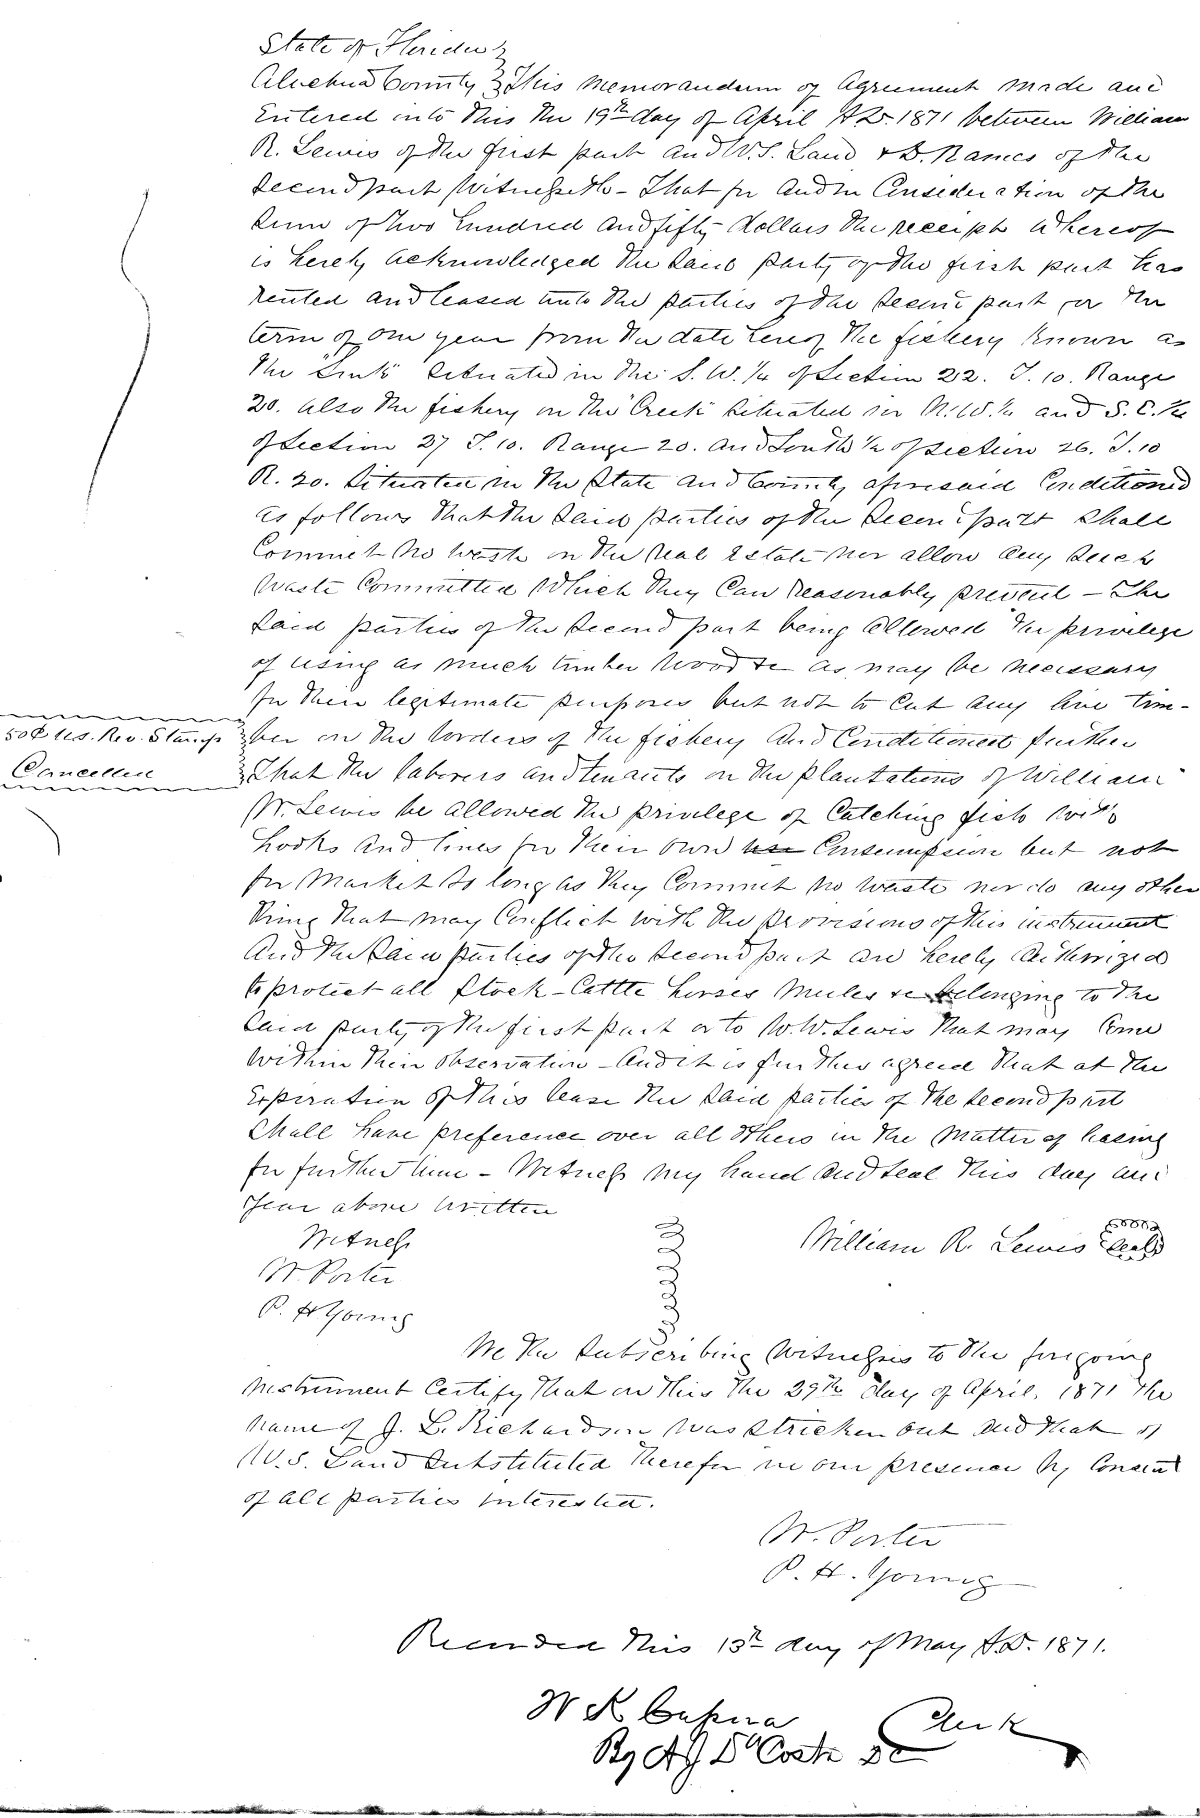 State of Florida
Alachua County } This Memorandum of Agreement made and
Entered into this the 19th day of April A.D. 1871 between William
R. Lewis of the first part and W.S. Land & D. Rames of the
second part Witnesseth - That for and in Consideration of the
sum of two hundred and fifty dollars the receipt whereof
is hereby acknowledged the said party of the first part has
rented and leased unto the parties of the second part for the
term of one year from the date hereof the fishery known as
the "Sink" situated in the S.W. 1/4 of Section 22. T. 10. Range
20. also the fishery on the "Creek" situated in N.W. 1/4 and S.E. 1/4
of Section 27 T. 10. Range 20. and South 1/2 of section 26. T. 10
R. 20. situated in the State and County aforesaid Conditioned
as follows that the said parties of the second part shall
Commit no waste on the real estate nor allow any such
waste Committed which they Can reasonably prevent - The
said parties of the second part being allowed the privilege
of using as much timber wood &c as may be necessary
for their legitimate purposes but not to Cut any live tim-
50¢ U.S. Rev. Stamp
Cancelled
ber on the borders of the fishery and Conditioned further
That the laborers and tenants on the plantations of William
W. Lewis be allowed the privilege of Catching fish with
hooks and lines for their own use Consumpsion but not
for Market so long as they Commit no waste nor do any other
thing that may Conflict with the provisions of this instrument
And the said parties of the second part are hereby authorized
to protect all stock - Cattle horses Mules &c belonging to the
said party of the first part or to W.W. Lewis that may Come
within their observation - And it is further agreed that at the
Expiration of this lease the said parties of the second part
shall have preference over all others in the matter of leasing
for further time - Witness my hand and seal this day and
year above written
Witness
William R. Lewis seal
W. Porter
P. H Young
We the subscribing Witnesses to the foregoing
instrument Certify that on this the 29th day of April, 1871 the
name of J. L. Richardson was stricken out and that of
W.S. Land substituted therefor in our presence by Consent
of all parties interested.
W. Porter
P. H. Young
Recorded this 13th day of May A.D. 1871.
W K Cessna Clerk
By A J DaCosta DC